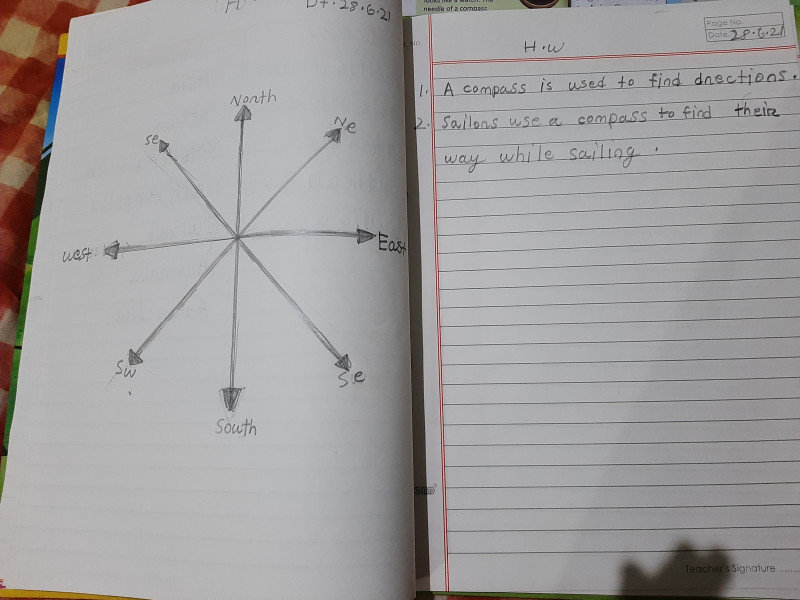 needle of a compass
Dt. 28.6.21
North
Ne
se
West
East
Sw
Se
South
Page No.
Date 28.6.21
H.W
1. A compass is used to find dnections.
2. Sailons use a compass to find their
way while sailing.
Teacher's Signature